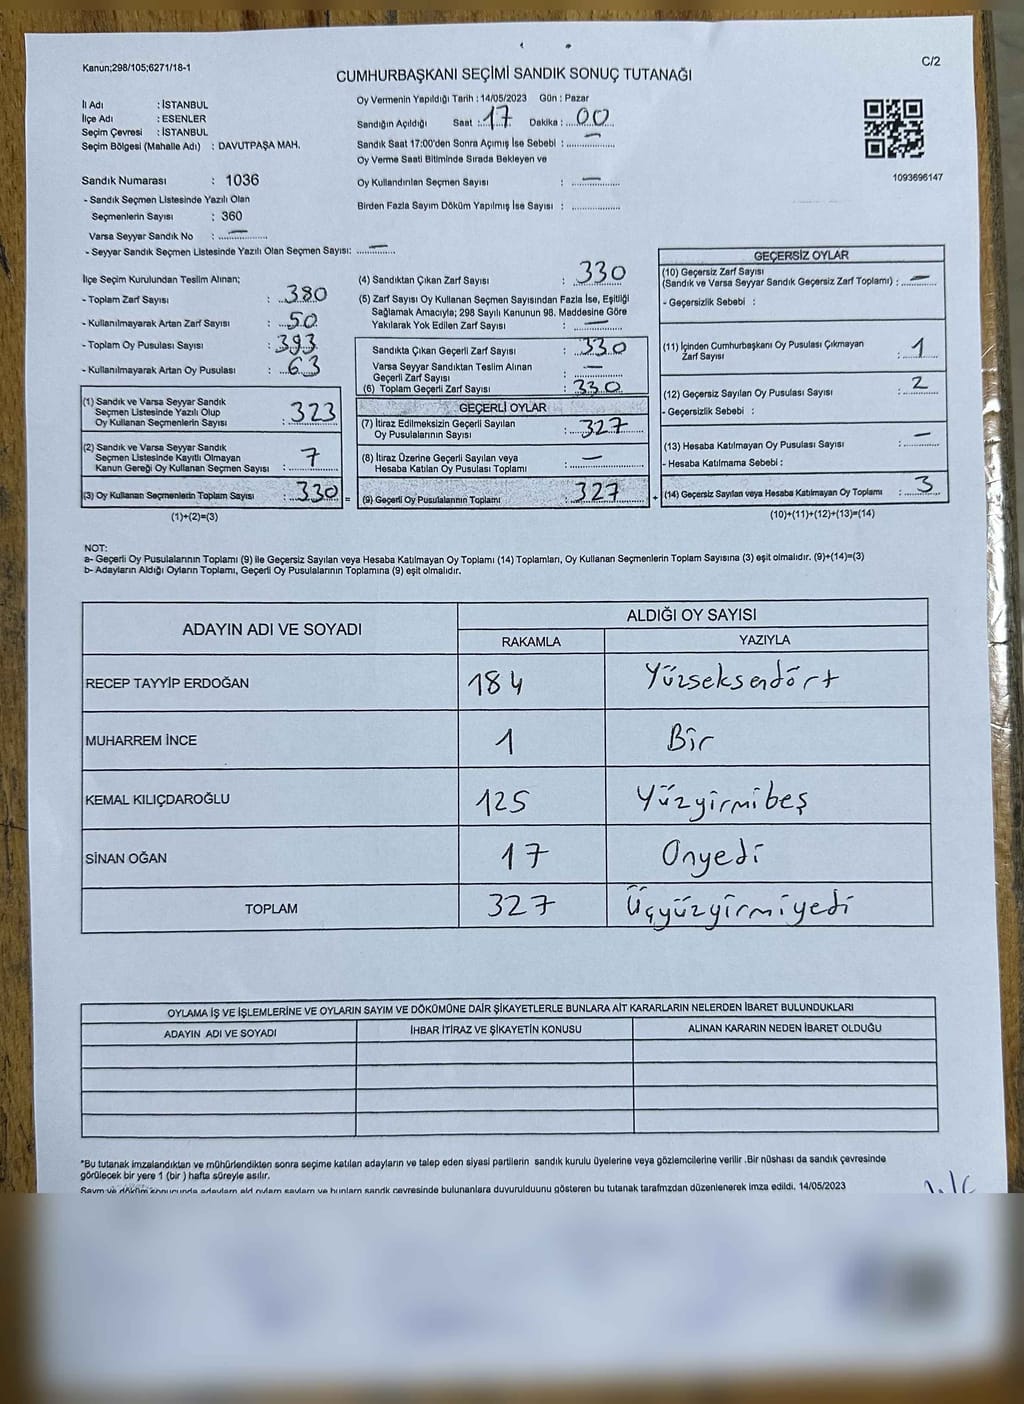 Kanun;298/105;6271/18-1
C/2
CUMHURBAŞKANI SEÇİMİ SANDIK SONUÇ TUTANAĞI
İl Adı : İSTANBUL
İlçe Adı : ESENLER
Seçim Çevresi : İSTANBUL
Seçim Bölgesi (Mahalle Adı) : DAVUTPAŞA MAH.
Oy Vermenin Yapıldığı Tarih : 14/05/2023 Gün : Pazar
Sandığın Açıldığı Saat : 17 Dakika : 00
Sandık Saat 17:00'den Sonra Açımış İse Sebebi : —
Oy Verme Saati Bitiminde Sırada Bekleyen ve
Oy Kullandırılan Seçmen Sayısı : —
Birden Fazla Sayım Döküm Yapılmış İse Sayısı :
1093696147
Sandık Numarası : 1036
- Sandık Seçmen Listesinde Yazılı Olan
Seçmenlerin Sayısı : 360
Varsa Seyyar Sandık No : —
- Seyyar Sandık Seçmen Listesinde Yazılı Olan Seçmen Sayısı: —
İlçe Seçim Kurulundan Teslim Alınan;
- Toplam Zarf Sayısı : 380
- Kullanılmayarak Artan Zarf Sayısı : 50
- Toplam Oy Pusulası Sayısı : 393
- Kullanılmayarak Artan Oy Pusulası : 63
(1) Sandık ve Varsa Seyyar Sandık
Seçmen Listesinde Yazılı Olup
Oy Kullanan Seçmenlerin Sayısı : 323
(2) Sandık ve Varsa Seyyar Sandık
Seçmen Listesinde Kayıtlı Olmayan
Kanun Gereği Oy Kullanan Seçmen Sayısı : 7
(3) Oy Kullanan Seçmenlerin Toplam Sayısı : 330 =
(1)+(2)=(3)
(4) Sandıktan Çıkan Zarf Sayısı : 330
(5) Zarf Sayısı Oy Kullanan Seçmen Sayısından Fazla İse, Eşitliği
Sağlamak Amacıyla; 298 Sayılı Kanunun 98. Maddesine Göre
Yakılarak Yok Edilen Zarf Sayısı : —
Sandıkta Çıkan Geçerli Zarf Sayısı : 330
Varsa Seyyar Sandıktan Teslim Alınan
Geçerli Zarf Sayısı : —
(6) Toplam Geçerli Zarf Sayısı : 330
GEÇERLİ OYLAR
(7) İtiraz Edilmeksizin Geçerli Sayılan
Oy Pusulalarının Sayısı : 327
(8) İtiraz Üzerine Geçerli Sayılan veya
Hesaba Katılan Oy Pusulası Toplamı : —
(9) Geçerli Oy Pusulalarının Toplamı : 327 +
GEÇERSİZ OYLAR
(10) Geçersiz Zarf Sayısı
(Sandık ve Varsa Seyyar Sandık Geçersiz Zarf Toplamı) : —
- Geçersizlik Sebebi :
(11) İçinden Cumhurbaşkanı Oy Pusulası Çıkmayan
Zarf Sayısı : 1
(12) Geçersiz Sayılan Oy Pusulası Sayısı : 2
- Geçersizlik Sebebi :
(13) Hesaba Katılmayan Oy Pusulası Sayısı : —
- Hesaba Katılmama Sebebi :
(14) Geçersiz Sayılan veya Hesaba Katılmayan Oy Toplamı : 3
(10)+(11)+(12)+(13)=(14)
NOT:
a- Geçerli Oy Pusulalarının Toplamı (9) ile Geçersiz Sayılan veya Hesaba Katılmayan Oy Toplamı (14) Toplamları, Oy Kullanan Seçmenlerin Toplam Sayısına (3) eşit olmalıdır. (9)+(14)=(3)
b- Adayların Aldığı Oyların Toplamı, Geçerli Oy Pusulalarının Toplamına (9) eşit olmalıdır.
ADAYIN ADI VE SOYADI
ALDIĞI OY SAYISI
RAKAMLA YAZIYLA
RECEP TAYYİP ERDOĞAN 184 Yüzseksendört
MUHARREM İNCE 1 Bir
KEMAL KILIÇDAROĞLU 125 Yüzyirmibeş
SİNAN OĞAN 17 Onyedi
TOPLAM 327 Üçyüzyirmiyedi
OYLAMA İŞ VE İŞLEMLERİNE VE OYLARIN SAYIM VE DÖKÜMÜNE DAİR ŞİKAYETLERLE BUNLARA AİT KARARLARIN NELERDEN İBARET BULUNDUKLARI
ADAYIN ADI VE SOYADI İHBAR İTİRAZ VE ŞİKAYETİN KONUSU ALINAN KARARIN NEDEN İBARET OLDUĞU
*Bu tutanak imzalandıktan ve mühürlendikten sonra seçime katılan adayların ve talep eden siyasi partilerin sandık kurulu üyelerine veya gözlemcilerine verilir .Bir nüshası da sandık çevresinde
görülecek bir yere 1 (bir ) hafta süreyle asılır.
Sayım ve döküm sonucunda adayların ald oyların sayılam ve bunların sandık çevresinde bulunanlara duyurulduunu gösteren bu tutanak tarafmzdan düzenlenerek imza edildi. 14/05/2023